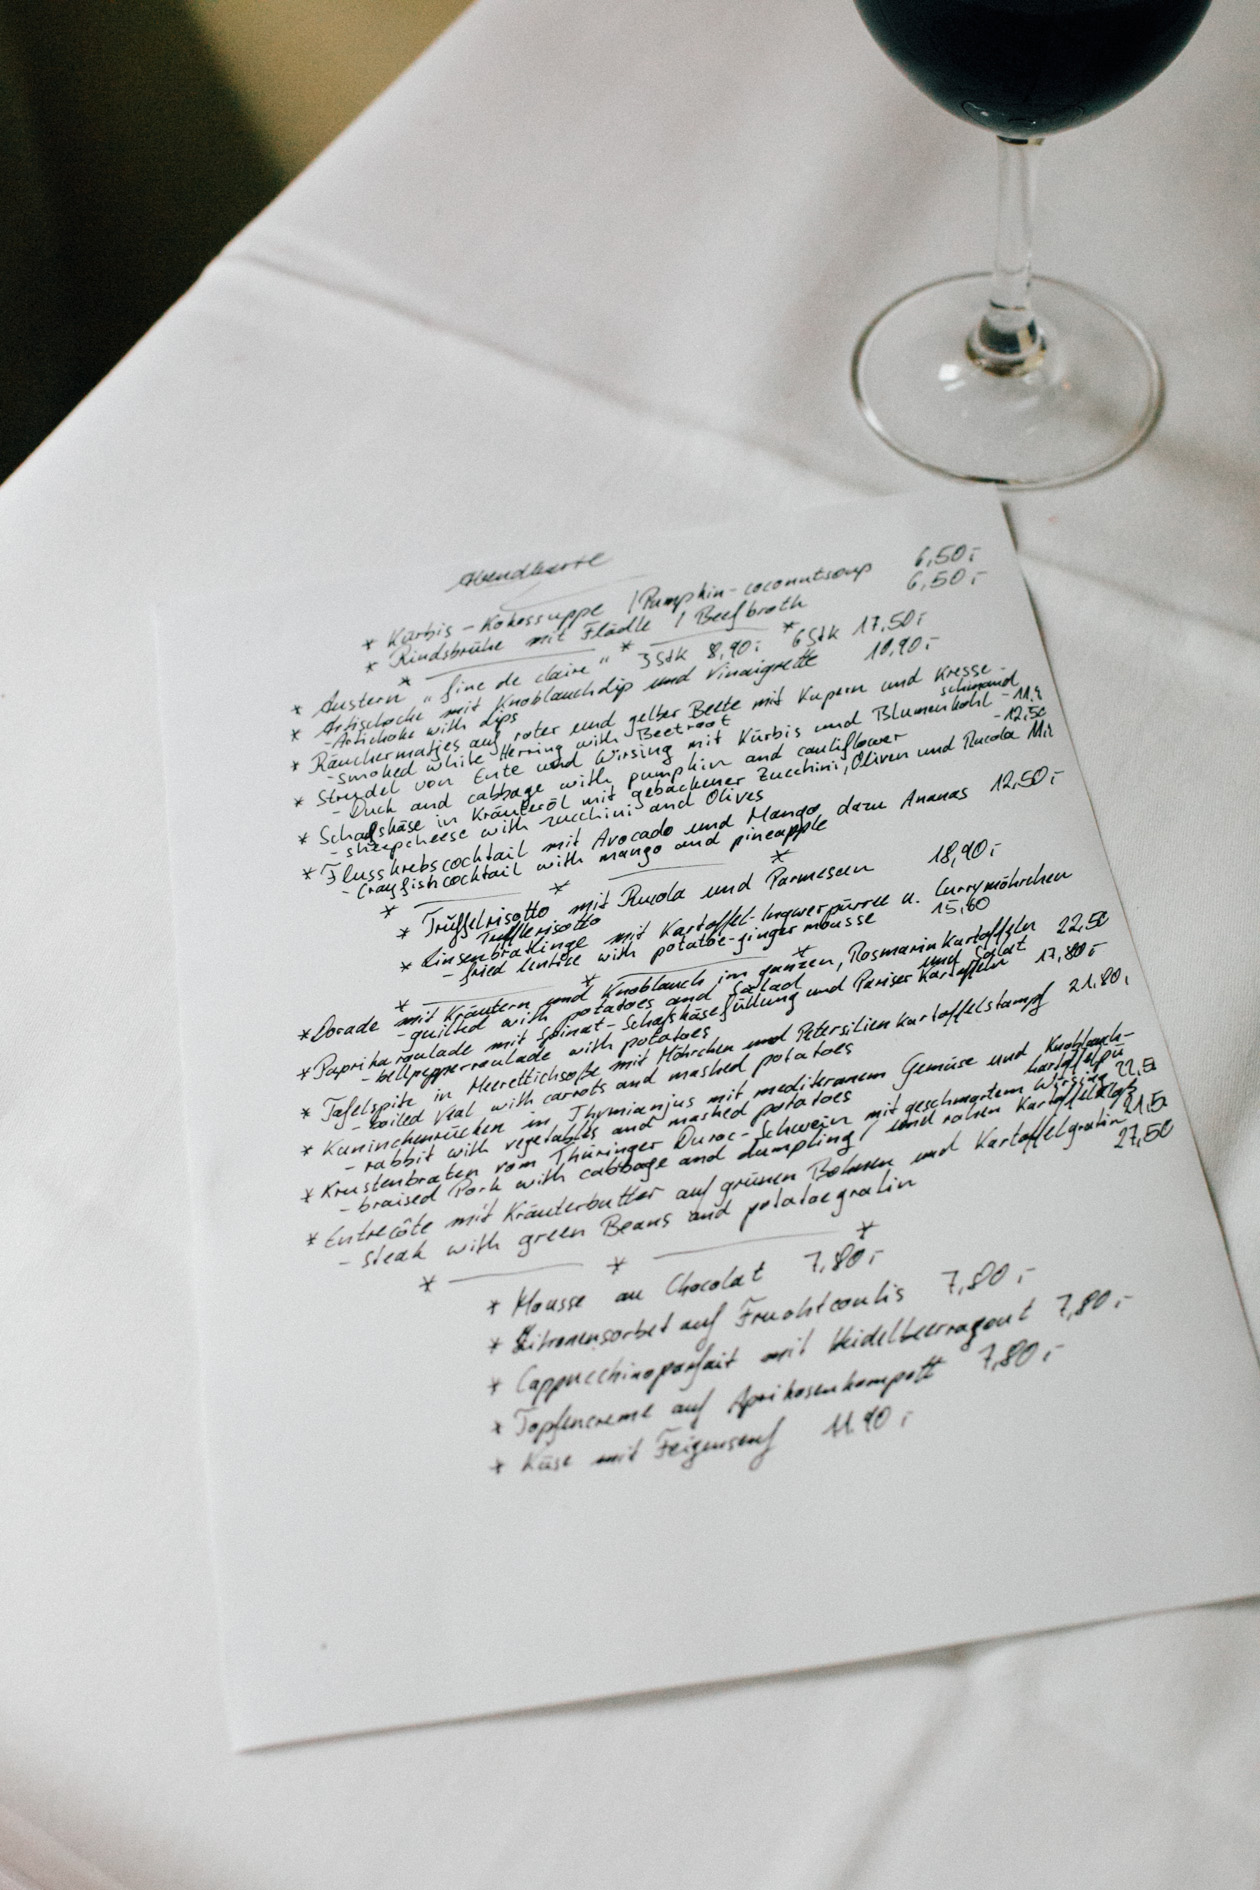 Abendkarte
* Kürbis-Kokossuppe / Pumpkin-coconutsoup 6,50,-
* Rindsbrühe mit Flädle / Beefbroth 6,50,-
* * *
* Austern "fine de claire" 3 Stk 8,90,- 6 Stk 17,50,-
* Artischocke mit Knoblauchdip und Vinaigrette 10,90,-
- Artichoke with dips
* Räuchermatjes auf roter und gelber Beete mit Kapern und Kresse-
schmand - 11,
- smoked white Herring with Beetroot
* Strudel von Ente und Wirsing mit Kürbis und Blumenkohl - 12,50
- Duck and cabbage with pumpkin and cauliflower
* Schafskäse in Kräuteröl mit gebackener Zucchini, Oliven und Rucola
- sheepcheese with zucchini and Olives
* Flusskrebscocktail mit Avocado und Mango dazu Ananas 12,50,-
- Crayfishcocktail with mango and pineapple
* * *
* Trüffelrisotto mit Rucola und Parmesan 18,90,-
Trufflerisotto
* Linsenbratlinge mit Kartoffel-Ingwerpürree u. Currymöhrchen
- fried lentils with potatoe-ginger mousse 15,60
* * *
* Dorade mit Kräutern und Knoblauch im ganzen, Rosmarinkartoffeln 22,50
und Salat
- guilted with potatoes and Salad
* Paprikaroulade mit Spinat-Schafskäsefüllung und Pariser Kartoffeln 17,80,-
- bellpepperroulade with potatoes
* Tafelspitz in Meerettichsoße mit Möhrchen und Petersilienkartoffelstampf 21,80,
- boiled Veal with carrots and mashed potatoes
* Kaninchenrücken in Thymianjus mit mediteranem Gemüse und Knoblauch-
kartoffelpü
- rabbit with vegetables and mashed potatoes
* Krustenbraten vom Thüringer Duroc-Schwein mit geschmortem Wirsing
und rohen
- braised Pork with cabbage and dumpling
* Entrecôte mit Kräuterbutter auf grünen Bohnen und Kartoffelgratin 27,50
- steak with green Beans and potatoegratin
* * *
* Mousse au Chocolat 7,80,-
* Zitronensorbet auf Fruchtcoulis 7,80,-
* Cappucchinoparfait mit Heidelbeerragout 7,80,-
* Topfencreme auf Aprikosenkompott 7,80,-
* Käse mit Feigensenf 11.90,-